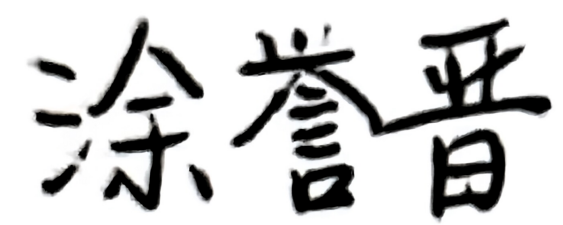 涂誉晋